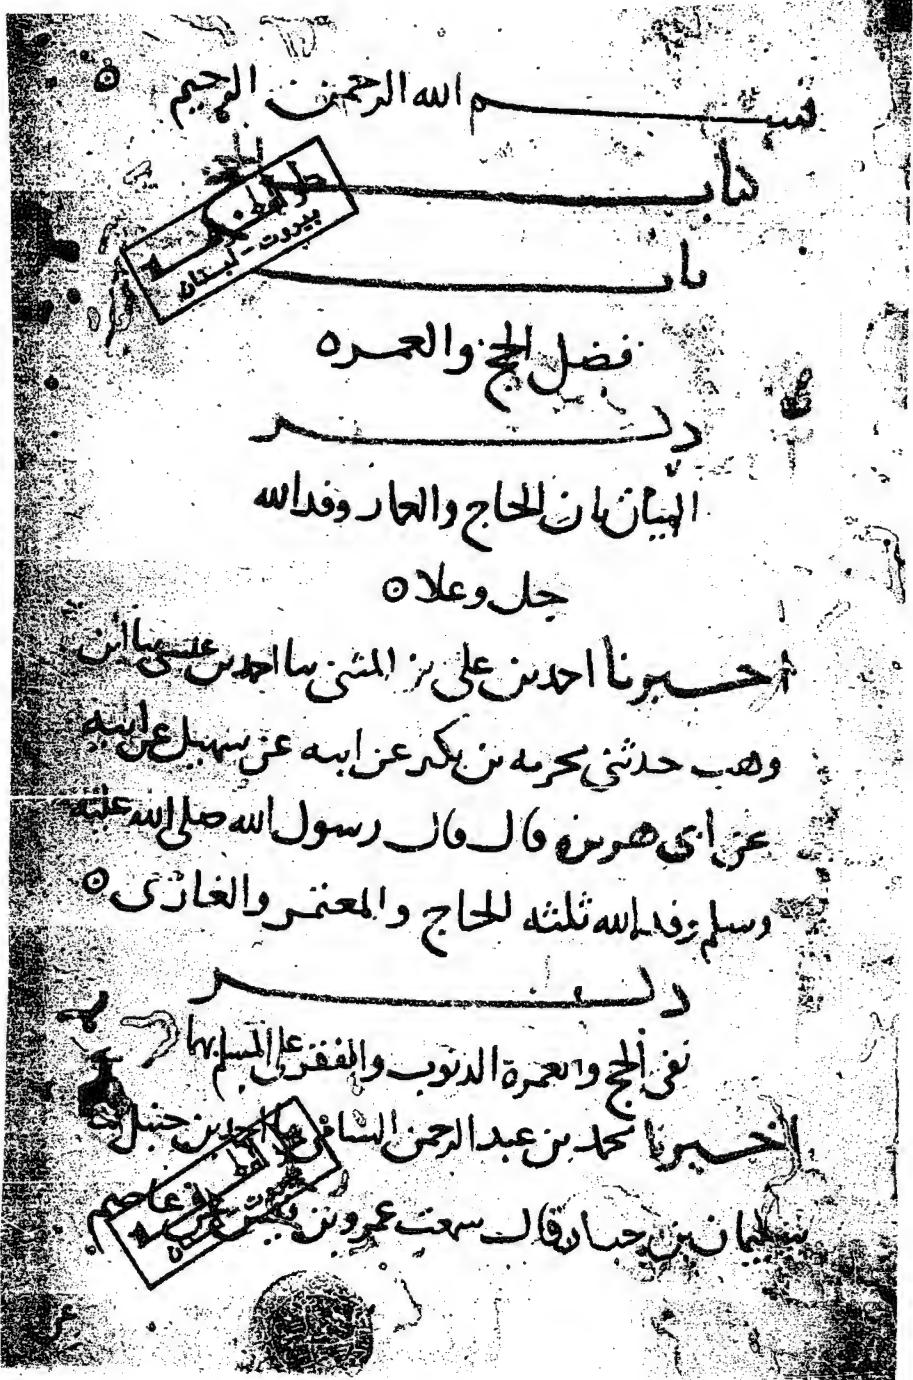 بسم الله الرحمن الرحيم ه
كتاب الحج
باب
فضل الحج والعمره ه
ذكر
البيان بان الحاج والعمار وفد الله
جل وعلا ه
اخبرنا احمد بن علي بن المثنى ثنا احمد بن عيسى ثنا ابن
وهب حدثني مخرمه بن بكير عن ابيه عن سهيل عن ابيه
عن ابي هريره قال قال رسول الله صلى الله عليه
وسلم وفد الله ثلثه الحاج والمعتمر والغازى ه
ذكر
نفى الحج والعمرة الذنوب والفقر عن المسلم بهما
اخبرنا محمد بن عبد الرحمن السامي ثنا احمد بن حنبل ثنا
سليمان بن حيان قال سمعت عمرو بن قيس عن عاصم
عن
بيروت - لبنان